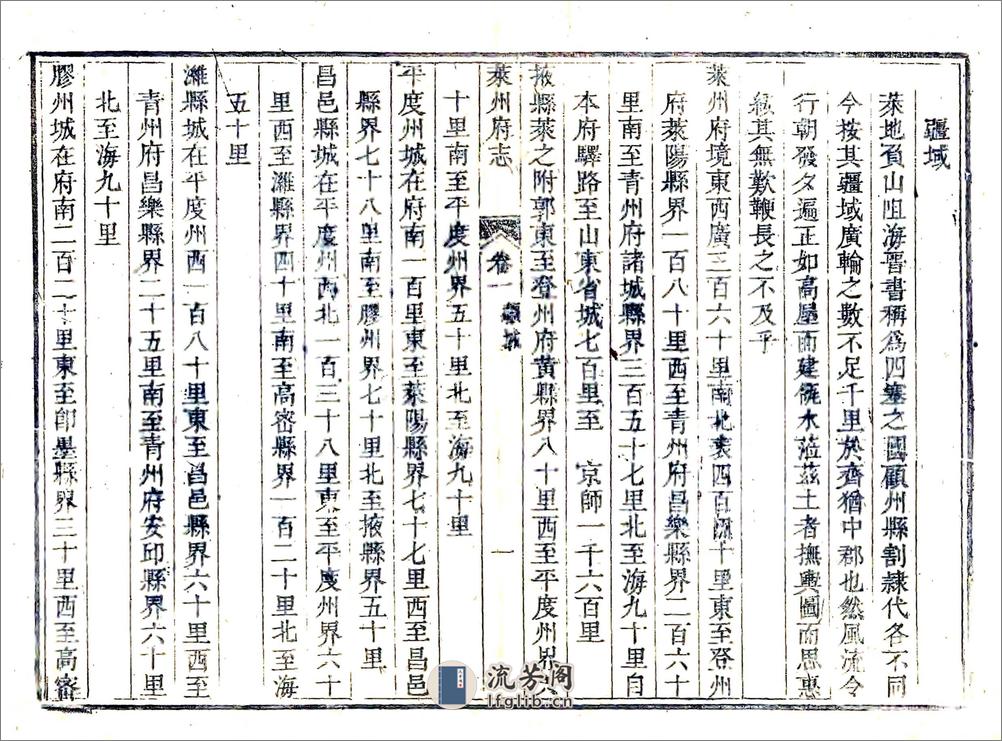 疆域
萊地負山咀海晋書稱為四塞之國顧州縣割隸代各不同
今按其疆域廣輪之數不足千里於齊猶中郡也然風流令
行朝發夕遍正如高屋而建瓴水蒞茲土者撫輿圖而思惠
綏其無歎鞭長之不及乎
萊州府境東西廣三百六十里南北袤四百 十里東至登州
府萊陽縣界一百八十里西至青州府昌樂縣界二百六十
里南至青州府諸城縣界三百五十七里北至海九十里自
本府驛路至山東省城七百里至 京師一千六百里
掖縣萊之附郭東至登州府黃縣界八十里西至平度州界
萊州府志 卷一 疆域 一
十里南至平度州界五十里北至海九十里
平度州城在府南一百里東至萊陽縣界七十七里西至昌邑
縣界七十八里南至膠州界七十里北至掖縣界五十里
昌邑縣城在平度州西北一百三十八里東至平度州界六十
里西至濰縣界四十里南至高密縣界一百二十里北至海
五十里
濰縣城在平度州西一百八十里東至昌邑縣界六十里西至
青州府昌樂縣界二十五里南至青州府安邱縣界六十里
北至海九十里
膠州城在府南二百二十里東至卽墨縣界三十里西至高密
流芳阁
lfglib.cn